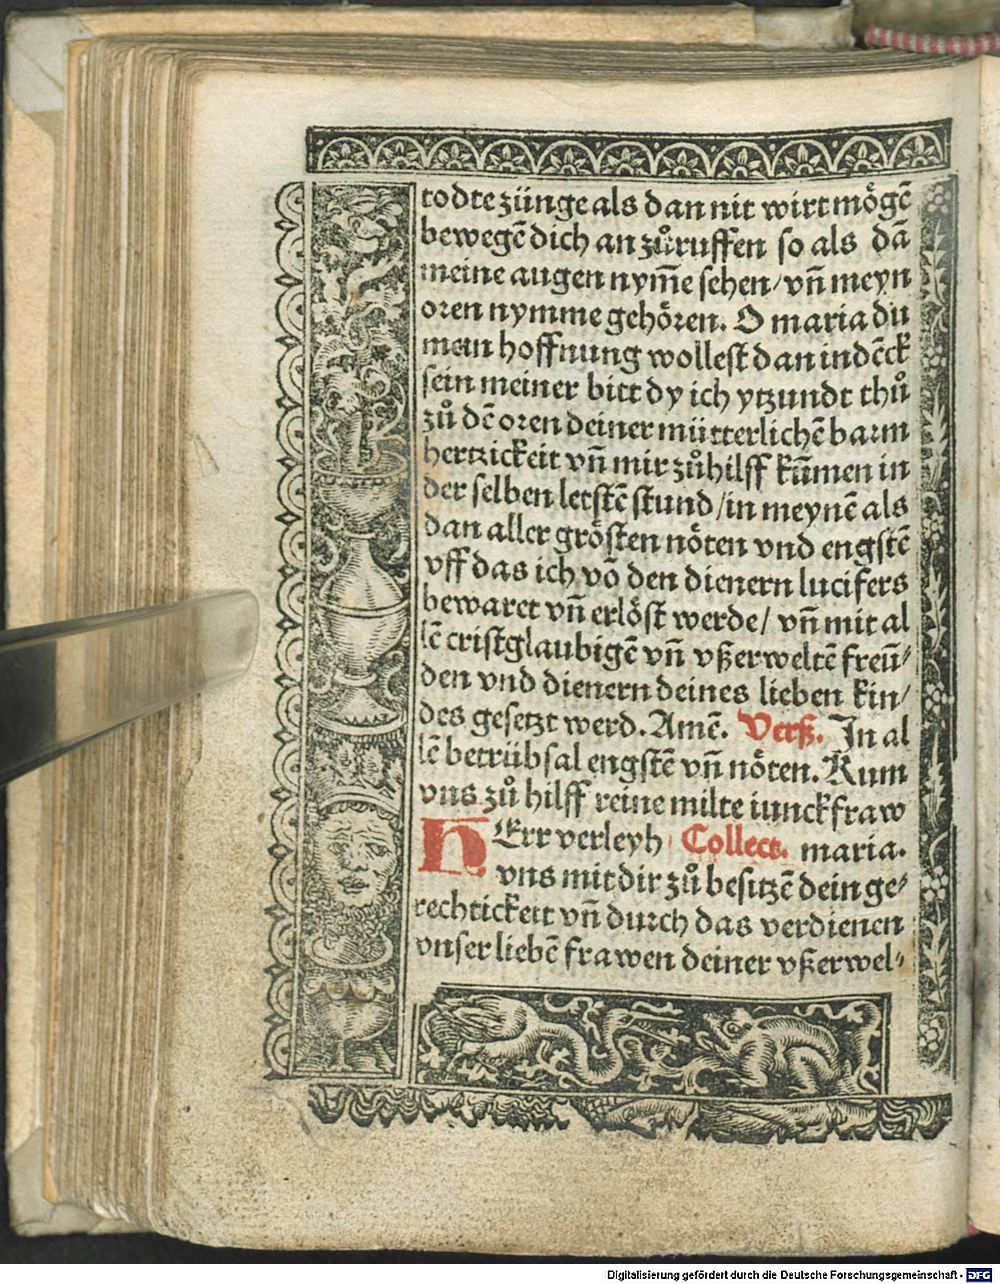 todte zünge als dan nit wirt mögē
bewegē dich an zůruffen so als dā
meine augen nym̄e sehen/ vn̄ meyn
oren nymme gehören. O maria du
mein hoffnung wollest dan indēck
sein meiner bitt dy ich ytzundt thů
zů dē oren deiner mütterlichē barm
hertzickeit vn̄ mir zůhilff kūmen in
der selben letstē stund/in meynē als
dan aller grösten nöten vnd engstē
vff das ich vō den dienern lucifers
bewaret vn̄ erlöst werde/ vn̄ mit al
lē cristglaubigē vn̄ vßerweltē freū⸗
den vnd dienern deines lieben kin/
des gesetzt werd. Amē. Verß. In al
lē betrübsal engstē vn̄ nöten. Kum
vns zů hilff reine milte iunckfraw
HErr verleyh Collect. maria.
vns mit dir zů besitzē dein ge⸗
rechtickeit vn̄ durch das verdienen
vnser liebē frawen deiner vßerwel⸗
Digitalisierung gefördert durch die Deutsche Forschungsgemeinschaft - DFG